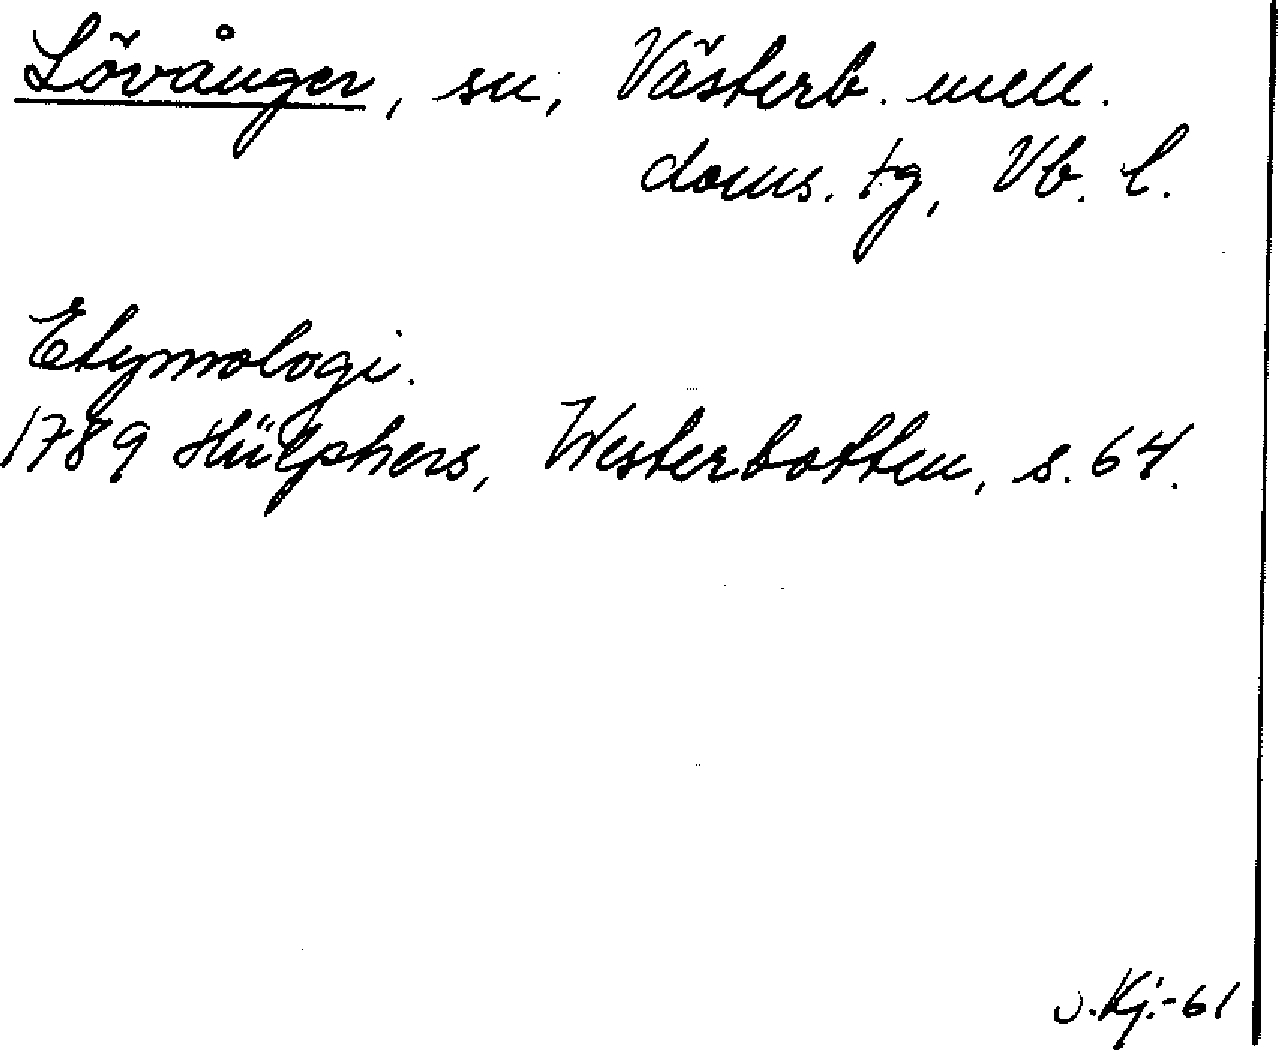 Lövånger, sn, Västerb. mell.
doms. tg, Vb. l.
Etymologi.
1789 Hülphers, Westerbotten, s. 64.
v. Kj.-61